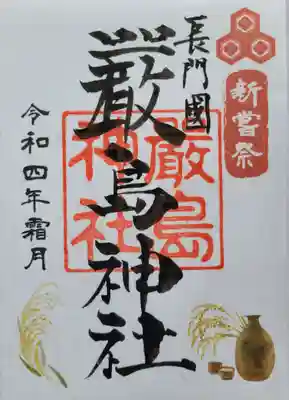 長門國
新嘗祭
巖島神社
厳島
神社
令和四年霜月